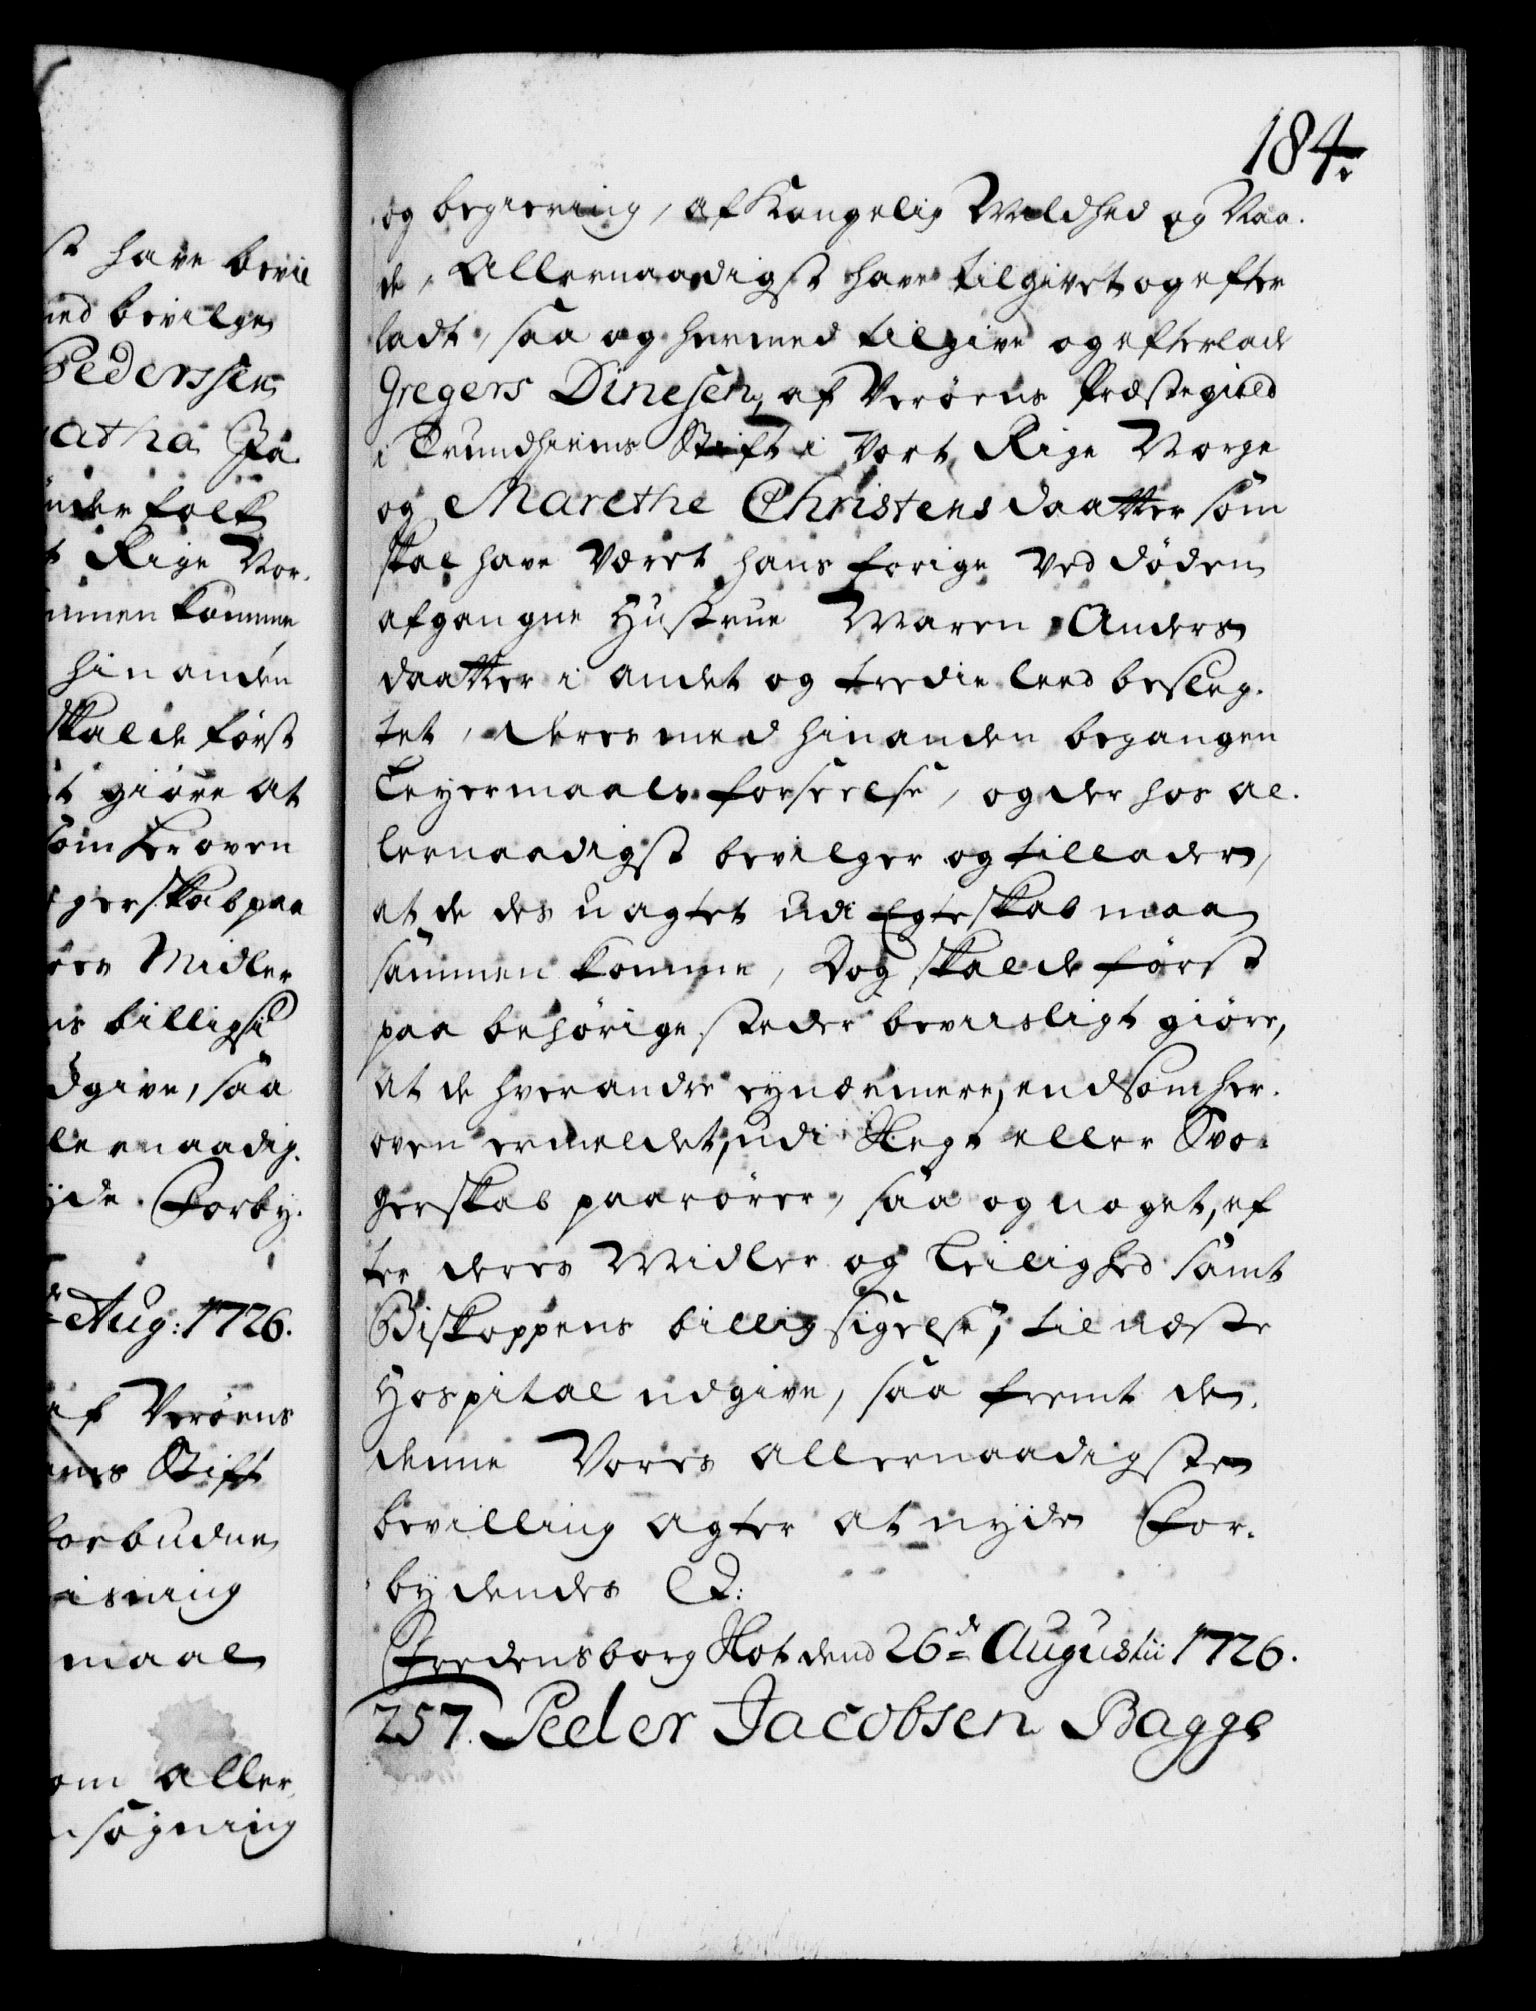 st have bevil
med bevilge
Pederssen
atha Ja
under folk
t Rige Nor.
ammen komme
hinanden
skal de først
t giøre at
som her oven
gerskab paa
deres Midler
ns billigst
udgive, saa
lernaadig.
yde. Forby.
Aug: 1726.
af Værøens
ems Stift
forbudne
maal
om aller
nsøgning
184r
og begiering, af Kongelig Mildhed og Naa.
de, Allernaadigst have tilgivet og efter
ladt, saa og hermed tilgive og efterlade
Gregers Dinesen, af Værøens Præstegield
i Trundhiems Stift i Vort Rige Norge
og Marethe Christensdaatter som
skal have været hans forige ved døden
afgangne Hustrue Maren Anders
daatter i andet og tredie leed besleg.
tet, deres med hinanden begangen
Leyermaals forseelse, og der hos al.
lernaadigst bevilger og tillader,
at de des uagtet udi Egteskab maa
sammen komme, Dog skal de først
paa behørige steder beviisligt giøre,
at de hverandre ey nærmere, end som her.
oven ermeldet, udi Slegt eller Svo.
gerskab paarører, saa og noget, ef
ter deres Midler og Leilighed samt
Biskoppens billig sigelse, til næste
Hospital udgive, saa fremt de
denne Vores allernaadigste
bevilling agter at nyde For.
bydendes &:
Fredensborg Slot dend 26de Augustii 1726.
257. Peder Jacobsen Bagge